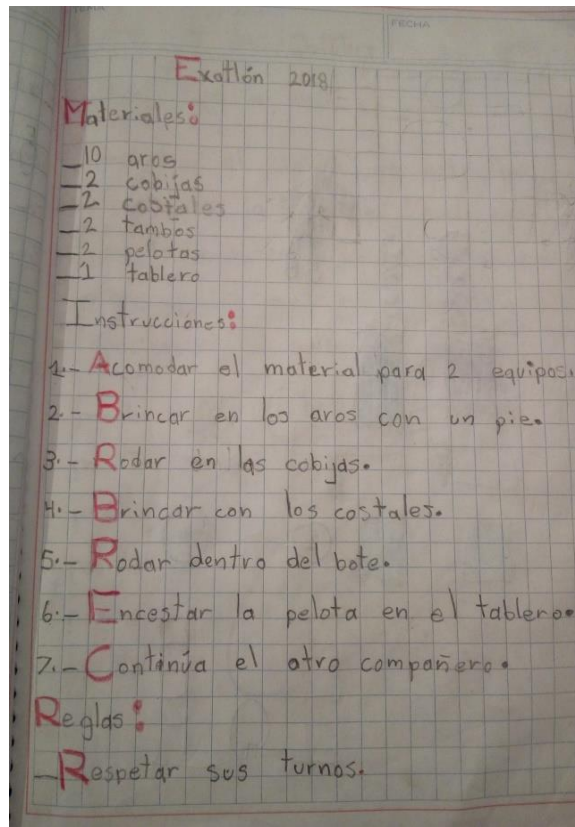 FECHA
Exatlón 2018
Materiales:
_10 aros
_2 cobijas
_2 costales
_2 tambos
_2 pelotas
_1 tablero
Instrucciones:
1.- Acomodar el material para 2 equipos.
2.- Brincar en los aros con un pie.
3.- Rodar en las cobijas.
4.- Brincar con los costales.
5.- Rodar dentro del bote.
6.- Encestar la pelota en el tablero.
7.- Continúa el otro compañero.
Reglas:
_Respetar sus turnos.